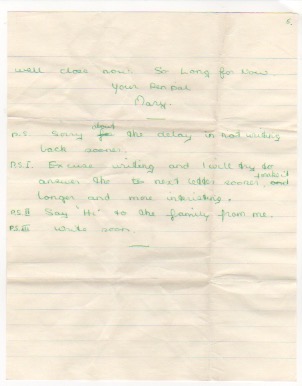 5.
well close now. So Long for Now
Your Pen pal
Mary.
P.S. Sorry about the delay in not writing
back sooner.
P.S.I. Excuse writing and I will try to
answer the next letter sooner, and make it
longer and more interesting.
P.S.II Say 'Hi' to the family from me.
P.S.III write soon.